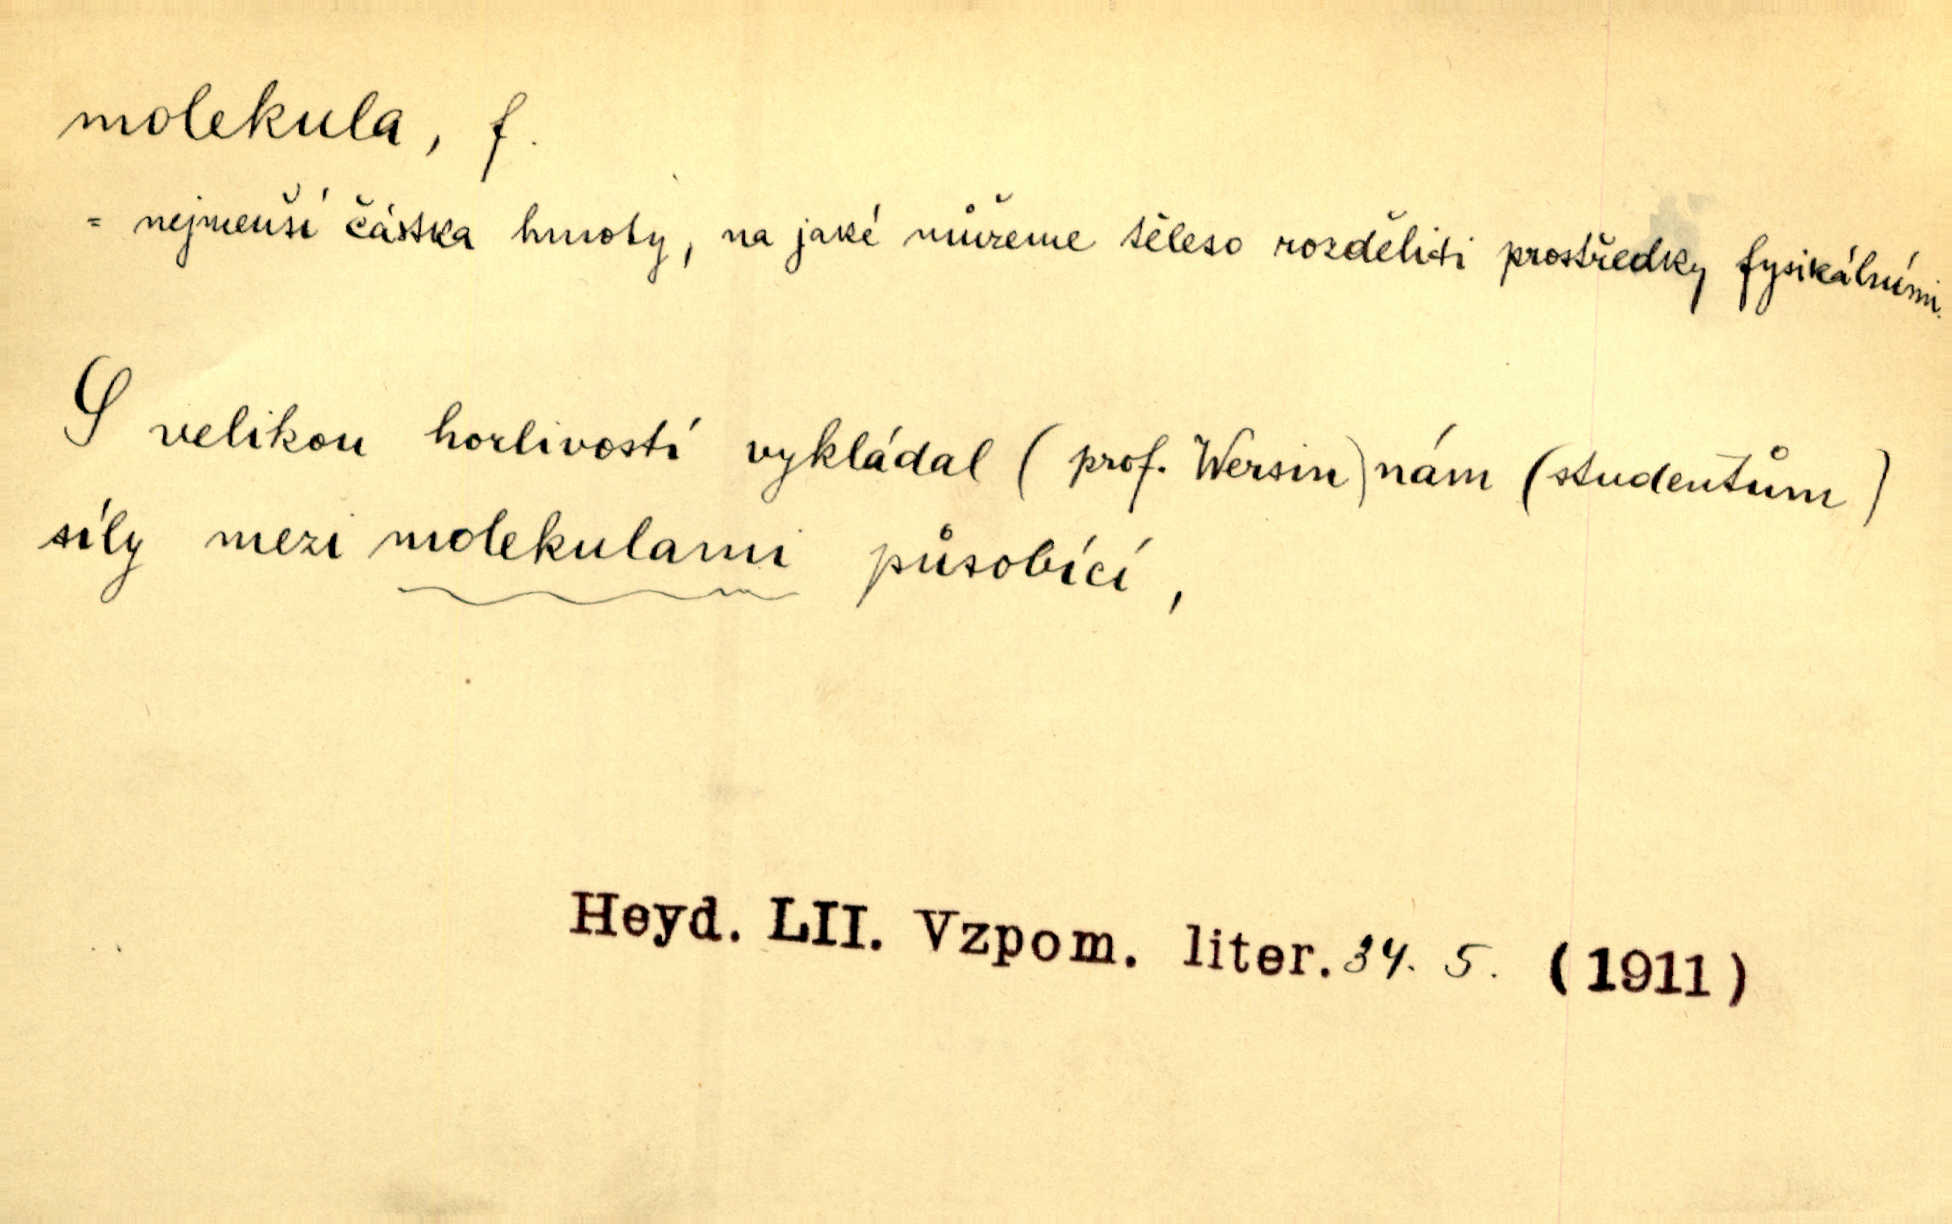 molekula, f.
= nejmenší částka hmoty, na jaké můžeme těleso rozděliti prostředky fysikálními.
S velikou horlivostí vykládal (prof. Wersin) nám (studentům)
síly mezi molekulami působící,
Heyd. LII. Vzpom. liter. 34. 5. (1911)